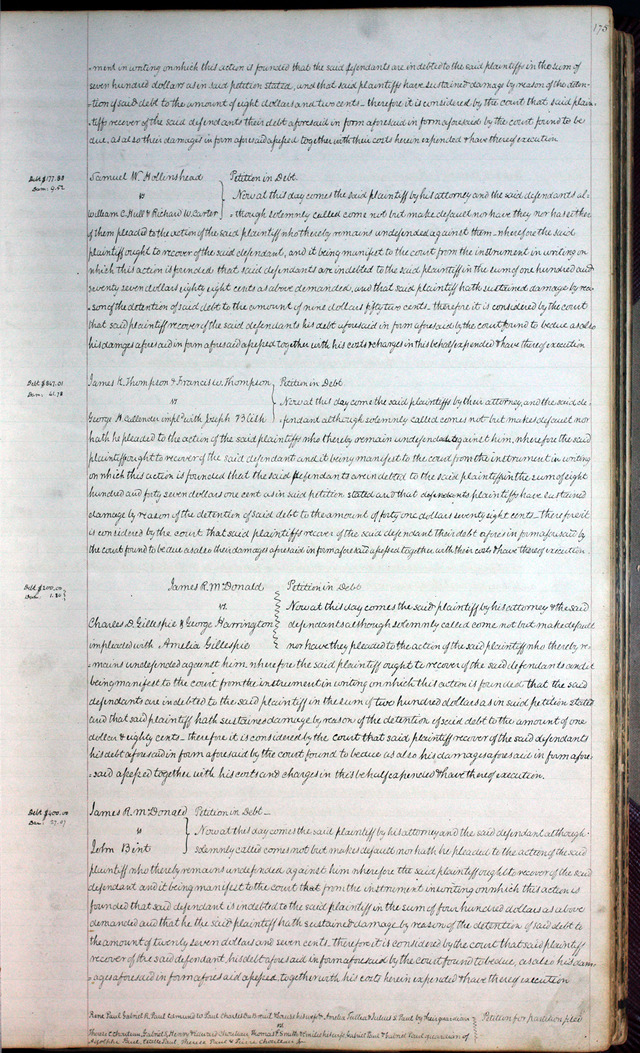 175
ment in writing on which this action is founded that the said defendants are indebted to the said plaintiffs in the sum of
seven hundred dollars as in said petition stated, and that said plaintiffs have sustained damage by reason of the deten-
-tion of said debt to the amount of eight dollars and two cents - therefore it is considered by the court that said plain-
-tiffs recover of the said defendants their debt aforesaid in form aforesaid in form aforesaid by the court found to be
due, as also their damages in form aforesaid assessed together with their costs herein expended & have thereof execution
Debt $177.88
Dam. 9.52
Samuel W. Hollinshead
vs
William C. Hull & Richard W. Carter
Petition in Debt.
Now at this day comes the said plaintiff by his attorney and the said defendants al-
-though solemnly called come not but make default nor have they nor has either
of them pleaded to the action of the said plaintiff who thereby remains undefended against them - wherefore the said
plaintiff ought to recover of the said defendant, and it being manifest to the court from the instrument in writing on
which this action is founded that said defendants are indebted to the said plaintiff in the sum of one hundred and
seventy seven dollars eighty eight cents as above demanded, and that said plaintiff hath sustained damage by rea-
son of the detention of said debt to the amount of nine dollars fifty two cents - therefore it is considered by the court
that said plaintiff recover of the said defendants his debt aforesaid in form aforesaid by the court found to be due as also
his damages aforesaid in form aforesaid assessed together with his costs & charges in this behalf expended & have thereof execution
Debt $847.01
Dam. 41.78
James H. Thompson & Francis W. Thompson
vs
George H. Callender impl'd with Joseph
Petition in Debt
Now at this day come the said plaintiffs by their attorney, and the said de-
-fendant although solemnly called comes not but makes default nor
hath he pleaded to the action of the said plaintiffs who thereby remain undefended against him, wherefore the said
plaintiffs ought to recover of the said defendant and it being manifest to the court from the instrument in writing
on which this action is founded that the said defendants are indebted to the said plaintiffs in the sum of eight
hundred and forty seven dollars one cent as in said petition stated and that defendants plaintiffs have sustained
damage by reason of the detention of said debt to the amount of forty one dollars seventy eight cents - therefore it
is considered by the court that said plaintiffs recover of the said defendants their debt afores in form aforesaid by
the court found to be due as also their damages aforesaid in form aforesaid assessed together with their costs & have thereof execution
Debt $200.00
Dam. 1.80
James R. McDonald
vs.
Charles D. Gillespie & George Harrington
impleaded with Amelia Gillespie
Petition in Debt
Now at this day comes the said plaintiff by his attorney & the said
defendants although solemnly called come not but make default
nor have they pleaded to the action of the said plaintiff who thereby re-
-mains undefended against him, wherefore the said plaintiff ought to recover of the said defendants and it
being manifest to the court from the instrument in writing on which this action is founded that the said
defendants are indebted to the said plaintiff in the sum of two hundred dollars as in said petition stated
and that said plaintiff hath sustained damage by reason of the detention of said debt to the amount of one
dollar & eighty cents - therefore it is considered by the court that said plaintiff recover of the said defendants
his debt aforesaid in form aforesaid by the court found to be due as also his damages aforesaid in form afore-
-said assessed together with his costs and charges in this behalf expended & have thereof execution.
Debt $400.00
Dam. 27.07
James R. McDonald
vs
John Bent
Petition in Debt -
Now at this day comes the said plaintiff by his attorney and the said defendant although
solemnly called comes not but makes default nor hath he pleaded to the action of the said
plaintiff who thereby remains undefended against him wherefore the said plaintiff ought to recover of the said
defendant and it being manifest to the court that from the instrument in writing on which this action is
founded that said defendant is indebted to the said plaintiff in the sum of four hundred dollars as above
demanded and that he the said plaintiff hath sustained damage by reason of the detention of said debt to
the amount of twenty seven dollars and seven cents. therefore it is considered by the court that said plaintiff
recover of the said defendant, his debt aforesaid in form aforesaid by the court found to be due, as also his dam-
-ages aforesaid in form afores aid assessed, together with his costs herein expended & have thereof execution
Rene Paul Gabriel R. Paul Edmund W. Paul & Julius Paul by their guardian
vs
Petition for partition filed
Therese Chouteau, Gabriel S. Henry & Edward Chouteau, Thomas F. Smith & Emilie his wife, Gabriel Paul & Gabriel Paul guardian of
Adolphe Paul, Estelle Paul, Therese Paul & Chouteau Jr